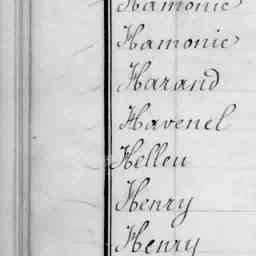 Hamonic
Hamonic
Harand
Havenel
Helleu
Henry
Henry